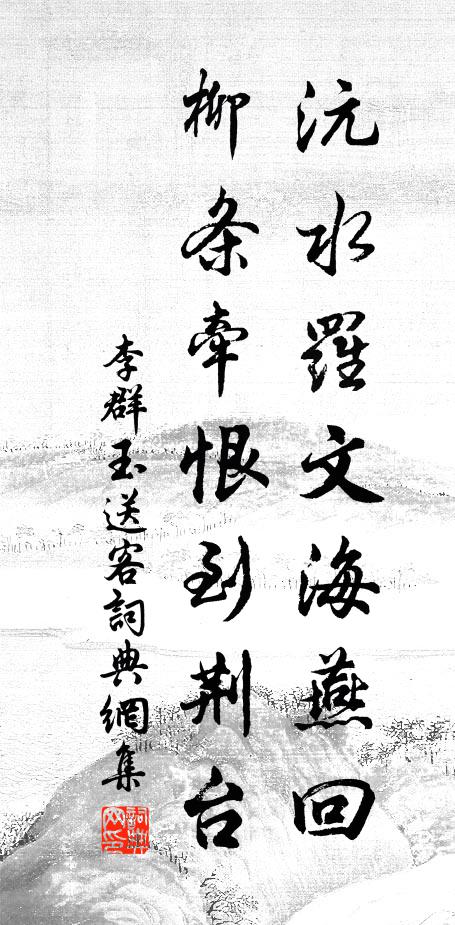 沅水羅文海燕回
柳条牽恨到荆台
李群玉送客詞典網集